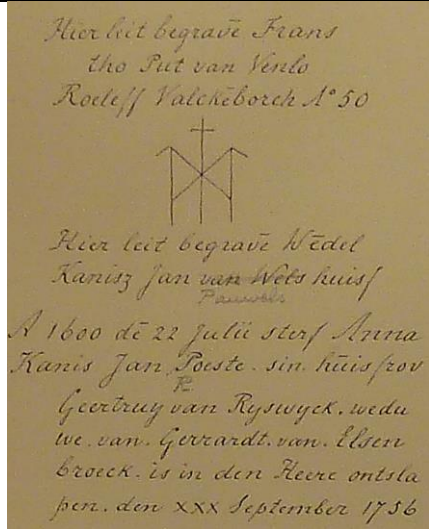 Hier leit begravē Frans
tho Put van Venlo
Roeleff Valckēborch A° 50
Hier leit begravē Wēdel
Kanisz Jan van Wels huisf
Pauwels
A 1600 dē 22 Julii sterf Anna
Kanis Jan Poeste. sin. huisfrov
R.
Geertruy van Ryswyck. wedu
we. van. Gerrardt. van. Elsen
broeck. is in den Heere ontsla
pen. den XXX September 1756